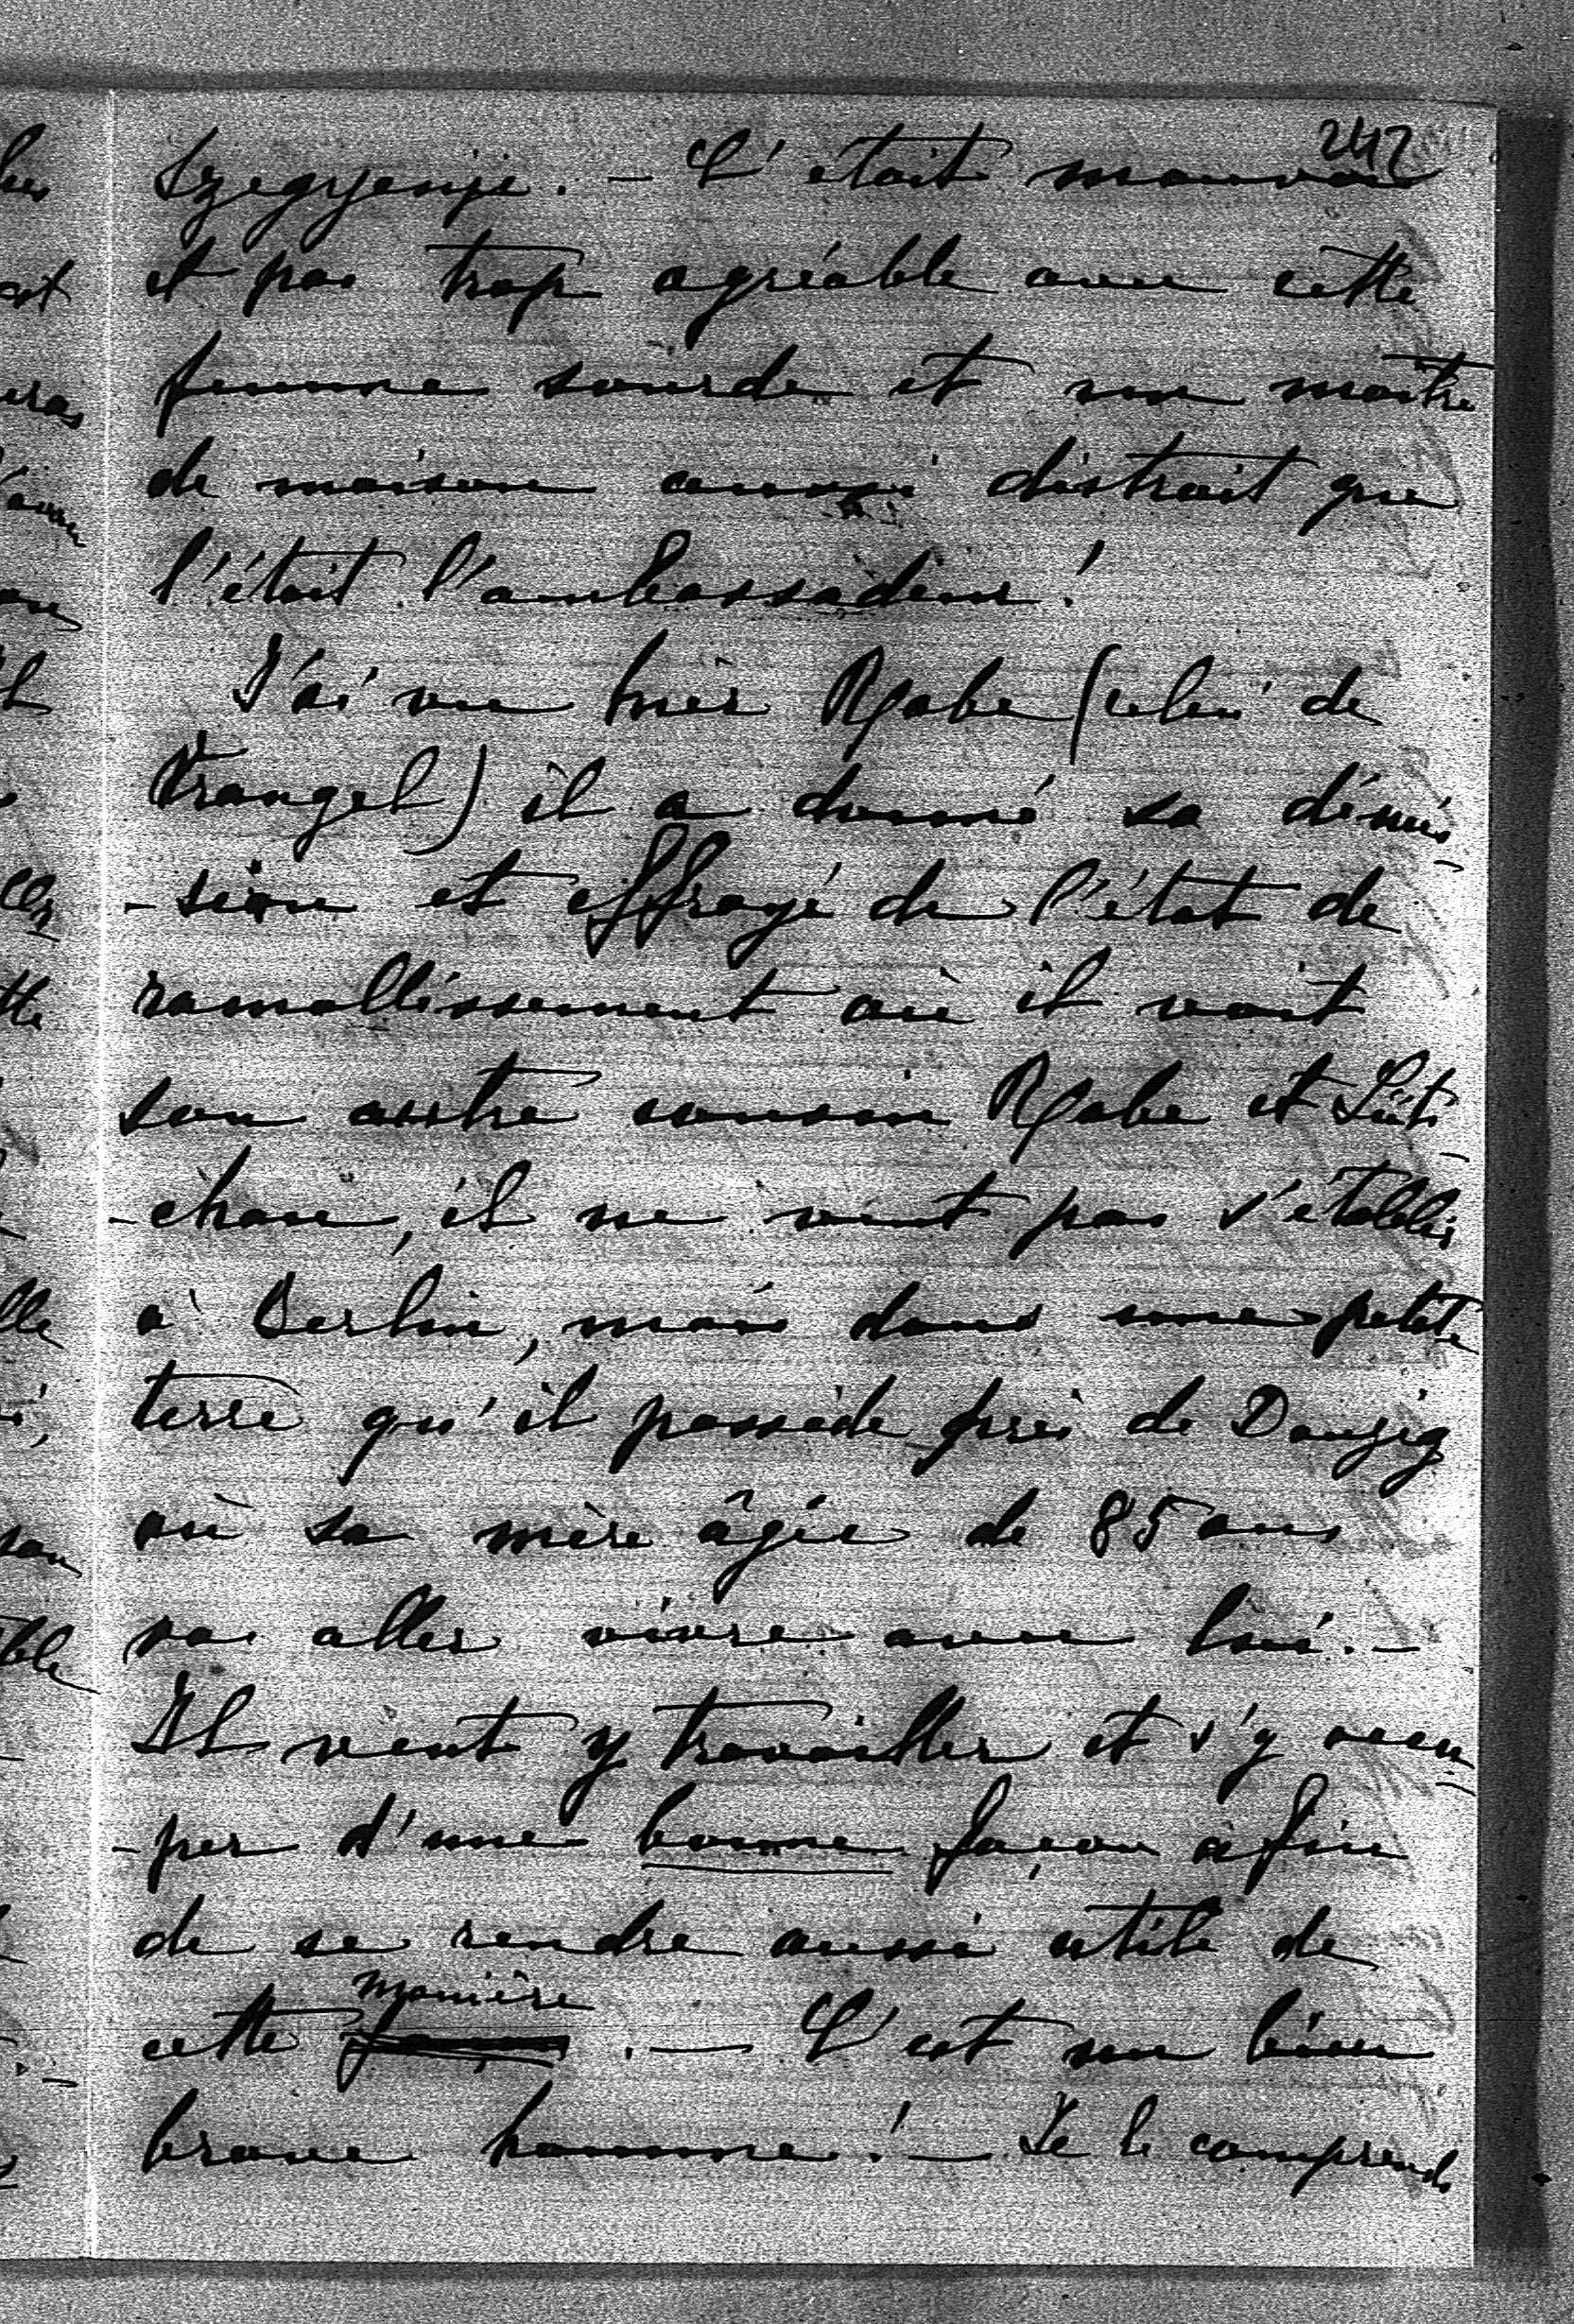 242
Szegyenji. – C'était mauvais
et pas trop agréable avec cette
femme sourde et un maître
de maison aussi distrait que
l'était l'ambassadeur!
J'ai vu hier Rabe (celui de
Vrangel) il a donné sa démis
-sion et effrayé de l'état de
ramollissement où il voit
son autre cousin Rabe et Lüti
-chau, il ne veut pas s'établir
à Berlin, mais dans une petite
terre qu'il possède près de Danzig
où sa mère âgée de 85 ans
va aller vivre avec lui. –
Il veut y travailler et s'y occu
-per d'une bonne façon afin
de se rendre aussi utile de
cette manière. – C'est un bien
brave homme! – Je le comprends